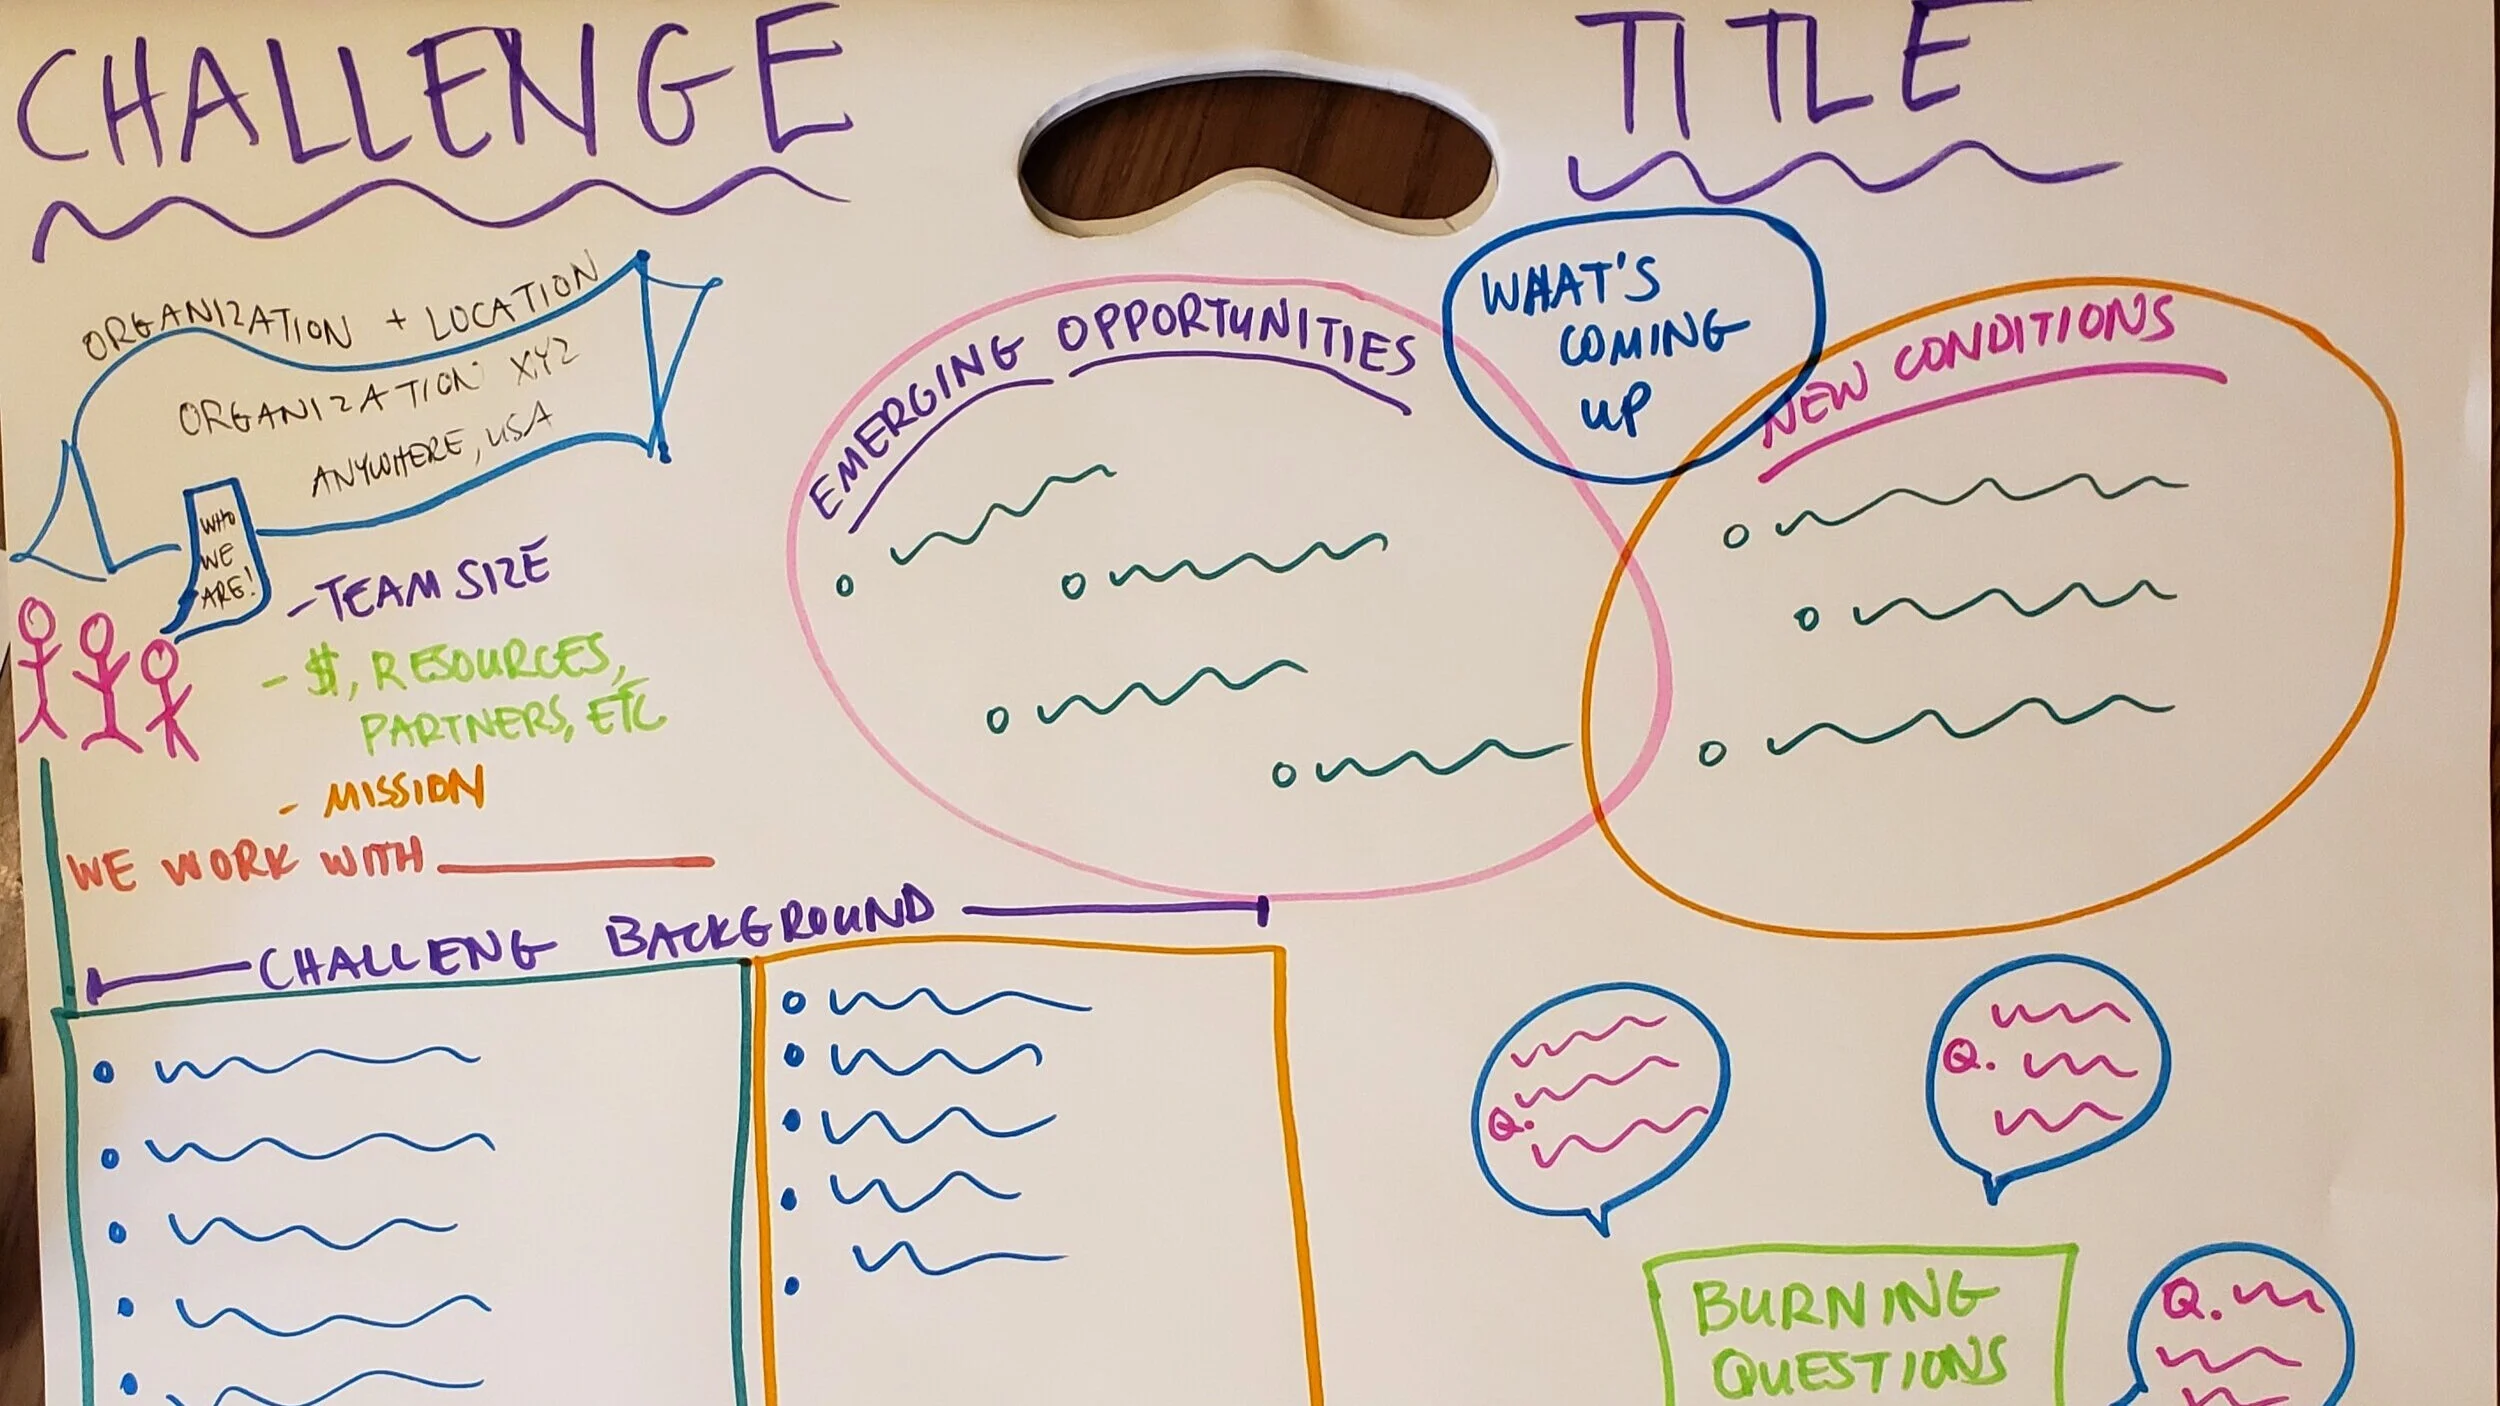 CHALLENGE TITLE
ORGANIZATION + LOCATION
ORGANIZATION XYZ
ANYWHERE, USA
WHO
WE
ARE!
- TEAM SIZE
- $, RESOURCES,
PARTNERS, ETC
- MISSION
WE WORK WITH
CHALLENG BACKGROUND
EMERGING OPPORTUNITIES
WHAT'S
COMING
UP
NEW CONDITIONS
Q.
Q.
BURNING
QUESTIONS
Q.